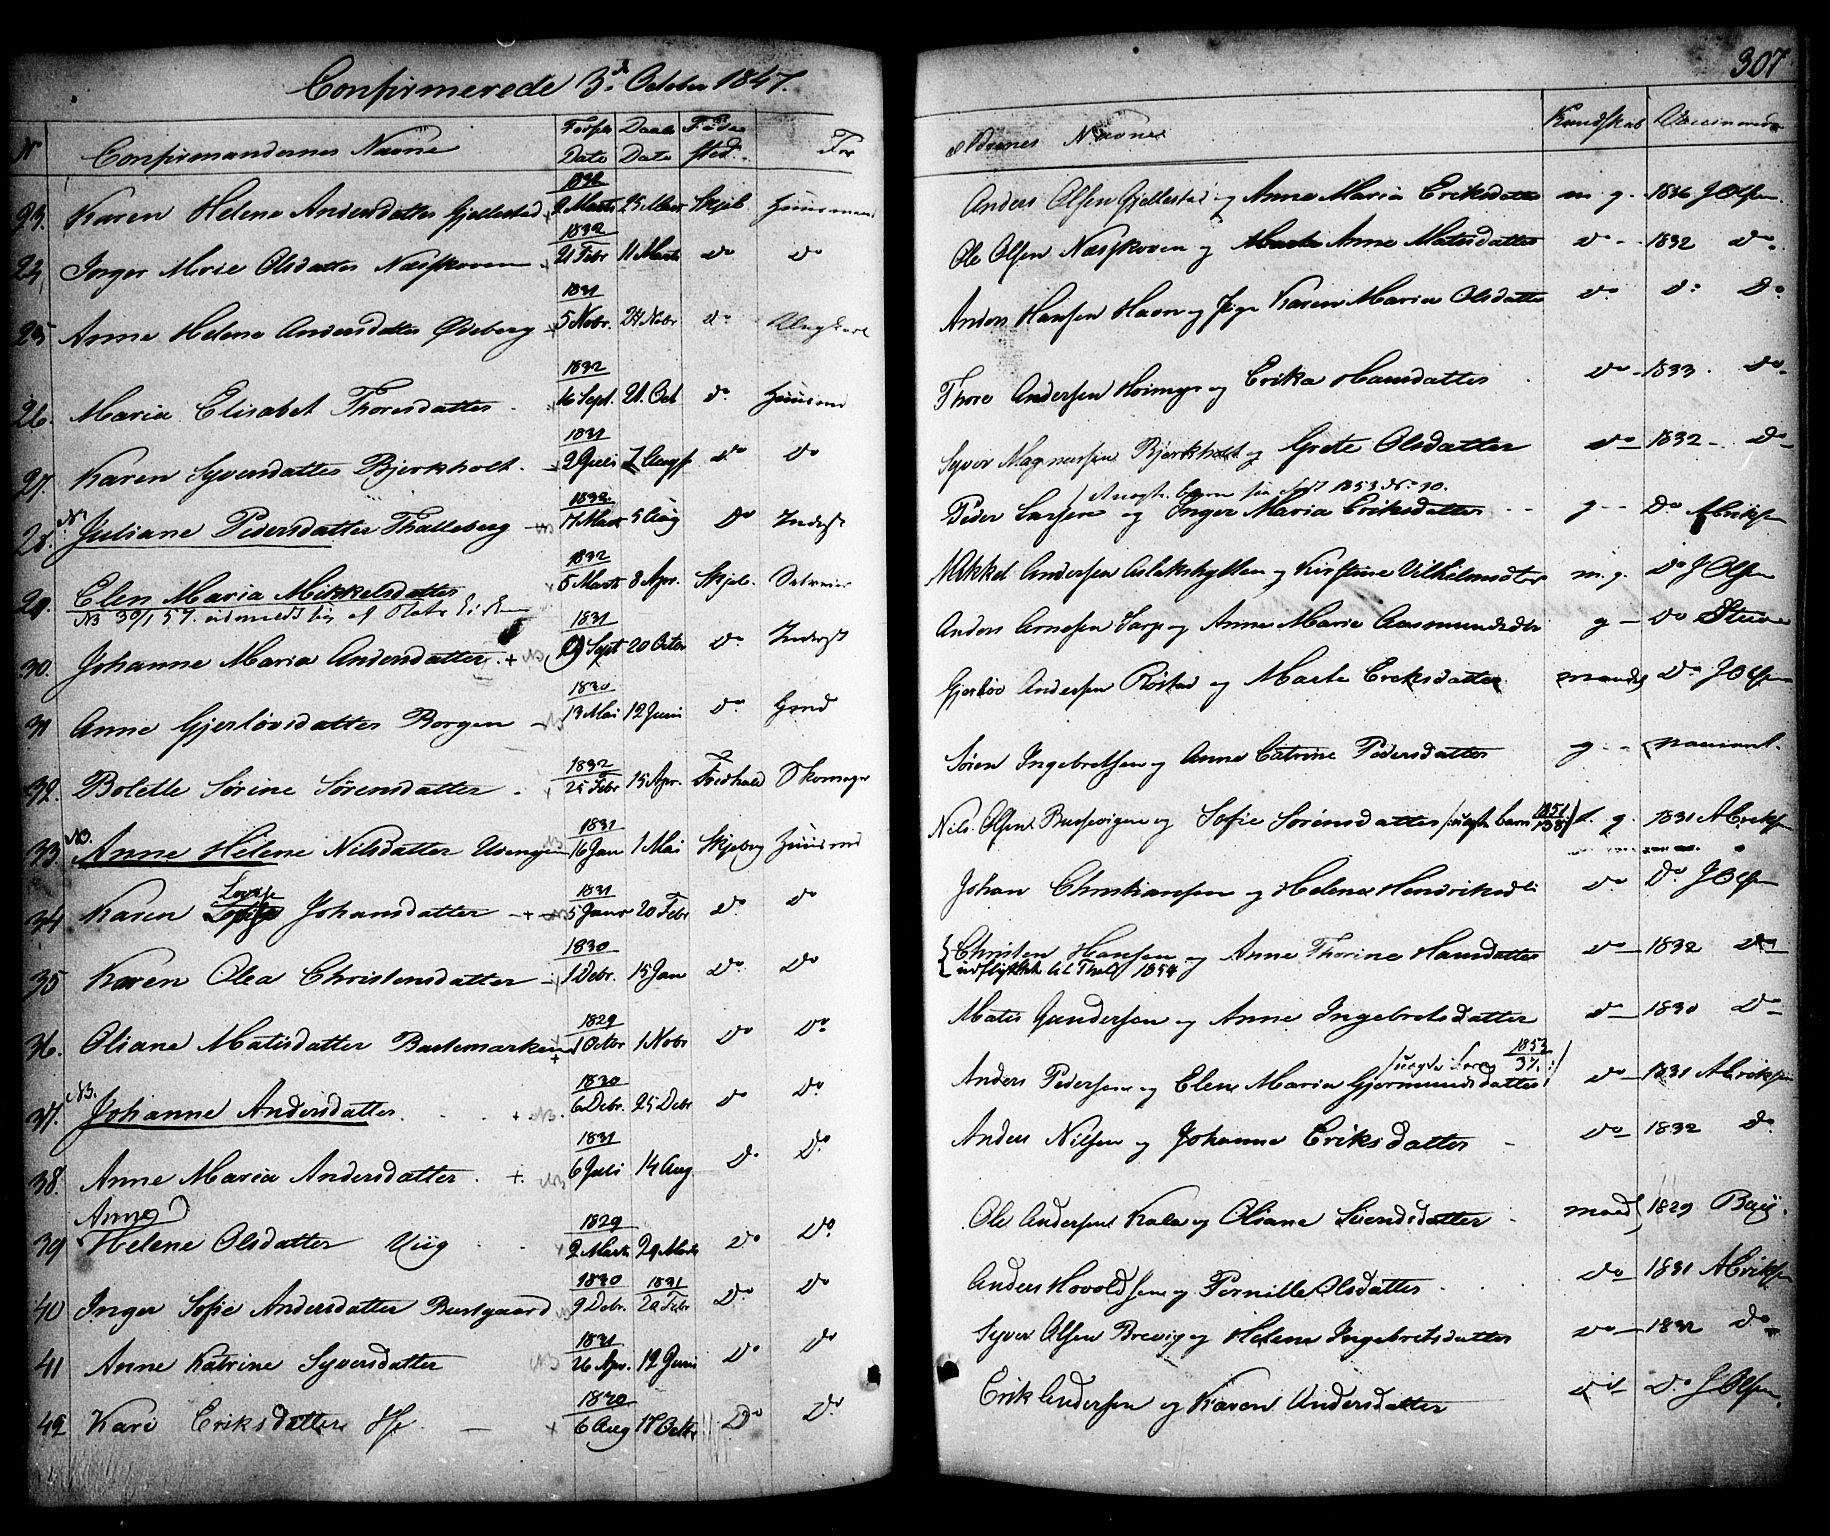 Confirmerede 3d October 1847.
307
No Confirmandernes Navne Fødsels Date Daabs Date Føde sted For ældrenes Navne Kundskab Vaccinerede
23. Karen Helene Andersdatter Gjellestad 1832 2 Marts 25 Marts Skjeb. Huusmand Anders Olsen Gjellestad og Anne Maria Eriksdatter m. g. 1836 J Olsen.
24, Inger Marie Olsdatter Næsskoven 1832 21 Febr 11 Marts do do Ole Olsen Næsskoven og Anne Matisdatter do 1832 do
25 Anne Helene Andersdatter Ødeberg 1831 5 Nobr. 24 Nobr do Ungkarl Anders Hansen Havn og Pige Karen Maria Olsdatter do do Do
26. Maria Elisabet Thoresdatter 1832 16 Sept. 21. Oct do Huusmd Thore Andersen Hoimyr og Erika Hansdatter do 1833. do
27. Karen Syversdatter Bjerkholt 1831 2 Juli 7 Aug do do Syver Magnussen Bjerkholt og Grete Olsdatter do 1832 do
28. N. Juliane Pedersdatter Thalleberg NB 1832 17 Marts 5 Aug Do Inderst Peder Larsen og Inger Maria Eriksdatter g Do A Eriksen
/ uægte barn 1853 No 10.
29. Elen Maria Mikkelsdatter 1832 5 Marts 8 Apr. Skjeb. Mikkel Andersen og Kirstine Vilhelmsdtr m. g. Do J Olsen
NB 30/1 57. udmeldt sig af Stats Kirken
30. Johanne Maria Andersdatter + NB 1831 Sept 20 Octbr do Inderst Anders Arnesen og Anne Maria Aasmundsdtr g do
31 Anne Gjerløvsdatter Borgen NB 1830 13 Mai 12 Juni do Gaard Gjerløv Andersen Røstad og Marte Eriksdatter maadl. Do J Olsen
32. Bolette Sørine Sørensdatter 1832 25 Febr 15 Apr. Fredhald Skomager Søren Ingebretsen og Anne Catrine Pedersdatter g
33. NB. Anne Helene Nilsdatter NB 1831 16 Jan 1 Mai Skjeberg Huusmd Nils Olsen og Sofie Sørensdatter /: uægte barn 1851/138 :/ t. g. 1831 A Eriksen
34 Karen Lovise Johansdatter + NB 1831 5 Janr 20 Febr do. do Johan Christiansen og Helene Hendriksd. do Do J Olsen
35 Karen Olea Christensdatter 1830 1 Debr. 15 Jan do. do Christen Hansen og Anne Thorine Hansdatter do 1832 do
udflyttet til 1854
36. Oliane Matisdatter Bastemarken 1829 1 Octbr 1 Nobr do Do Matis Gundersen og Anne Ingebretsdatter do 1830 Do
37. NB. Johanne Andersdatter + NB. 1830 6 Debr. 25 Debr do Do. Anders Pedersen og Elen Maria Gjermundsdatter do 1831 A Eriksen
1853/37.:/
38. Anne Maria Andersdatter + NB 1831 6 Juli 14 Aug D. Do. Anders Nilsen og Johanne Eriksdatter do 1832 do
39 Anne Helene Olsdatter Viig 1829 2 Marts 29 Marts Do Do. Ole Andersen og Oliane Svendsdatter maadl. 1829
40 Inger Sofie Andersdatter Bustgaard 1830 9 Debr. 1831 20 Febr Do. Do Anders Hovoldsen og Pernille Olsdatter do 1831 A Eriksen
41 Anne Katrine Syversdatter NB 1831 26 Apr. 12 Juni Do do Syver Olsen Brevig og Helene Ingebretsdatter do 1832 do
42 Kari Eriksdatter 1830 6 Aug 17 Octbr Do Do. Erik Andersen og Karen Andersdatter do. J Olsen.